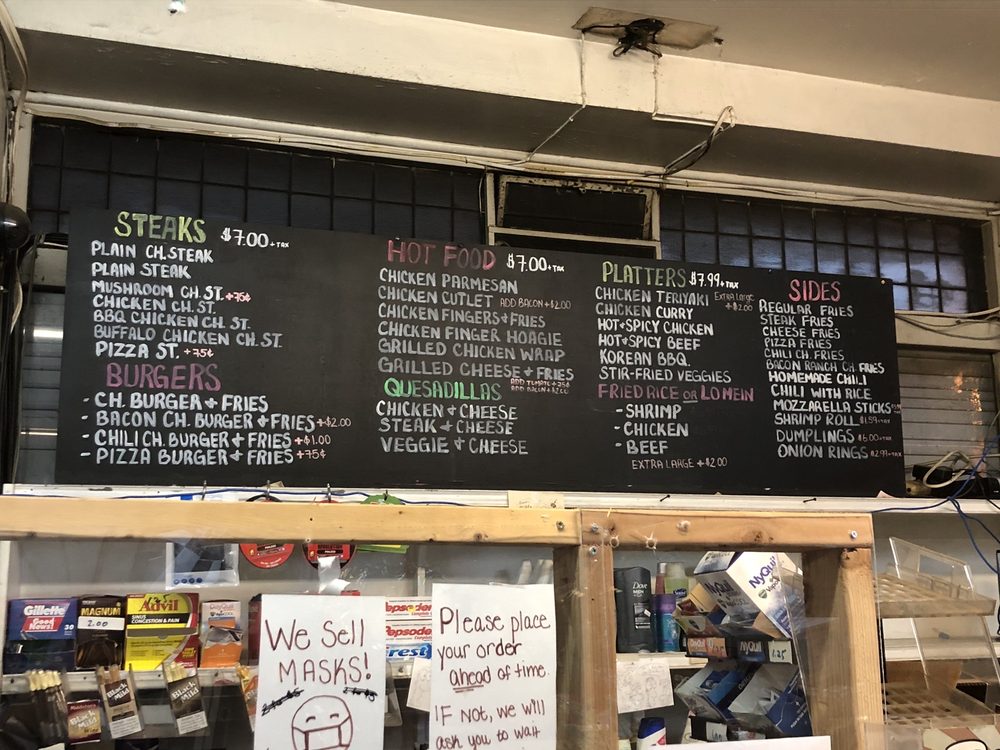 STEAKS $7.00+TAX
PLAIN CH.STEAK
PLAIN STEAK
MUSHROOM CH. ST. +75¢
CHICKEN CH. ST.
BBQ CHICKEN CH. ST.
BUFFALO CHICKEN CH. ST.
PIZZA ST. +75¢
BURGERS
- CH. BURGER & FRIES
- BACON CH. BURGER & FRIES +$2.00
- CHILI CH. BURGER & FRIES +$1.00
- PIZZA BURGER & FRIES +75¢
HOT FOOD $7.00+TAX
CHICKEN PARMESAN
CHICKEN CUTLET ADD BACON +$2.00
CHICKEN FINGERS & FRIES
CHICKEN FINGER HOAGIE
GRILLED CHICKEN WRAP
GRILLED CHEESE & FRIES
ADD TOMATO +25¢
ADD BACON +$2.00
QUESADILLAS
CHICKEN & CHEESE
STEAK & CHEESE
VEGGIE & CHEESE
PLATTERS $7.99+TAX
CHICKEN TERIYAKI EXTRA LARGE +$2.00
CHICKEN CURRY
HOT & SPICY CHICKEN
HOT & SPICY BEEF
KOREAN BBQ
STIR-FRIED VEGGIES
FRIED RICE OR LO MEIN
- SHRIMP
- CHICKEN
- BEEF
EXTRA LARGE +$2.00
SIDES
REGULAR FRIES
STEAK FRIES
CHEESE FRIES
PIZZA FRIES
CHILI CH. FRIES
BACON RANCH CH. FRIES
HOMEMADE CHILI
CHILI WITH RICE
MOZZARELLA STICKS
SHRIMP ROLL $1.59+TAX
DUMPLINGS $6.00+TAX
ONION RINGS $2.99+TAX
Gillette
Good News!
30
MAGNUM
2.00
Advil
SINUS CONGESTION & PAIN
DayQuil
Pepsodent
Crest
Black & Mild
Black & Mild
We Sell
MASKS!
Please place
your order
ahead of time.
IF NOT, we will
ask you to wait
Dove
MEN
NyQuil
NyQuil
1.25